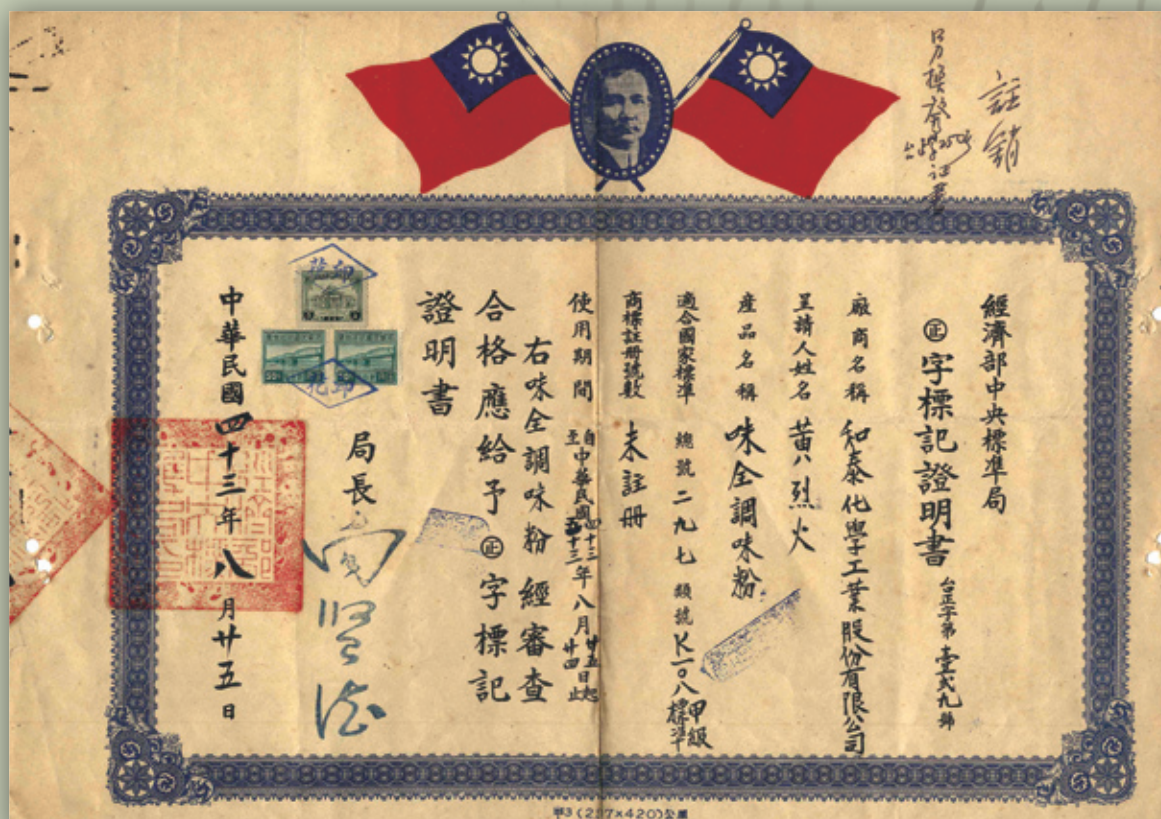 註銷
另換發
經濟部中央標準局
㊣字標記證明書 台正字第壹弍九號
廠商名稱 和泰化學工業股份有限公司
呈請人姓名 黃八烈火
產品名稱 味全調味粉
適合國家標準 總號二九七 類號K一〇八 甲級標準
商標註冊號數 未註冊
使用期間 自至中華民國四十三五十三年八月廿五日起廿四日止
右味全調味粉經審查
合格應給予㊣字標記
證明書
局長
中華民國四十三年八月廿五日
印花
印花